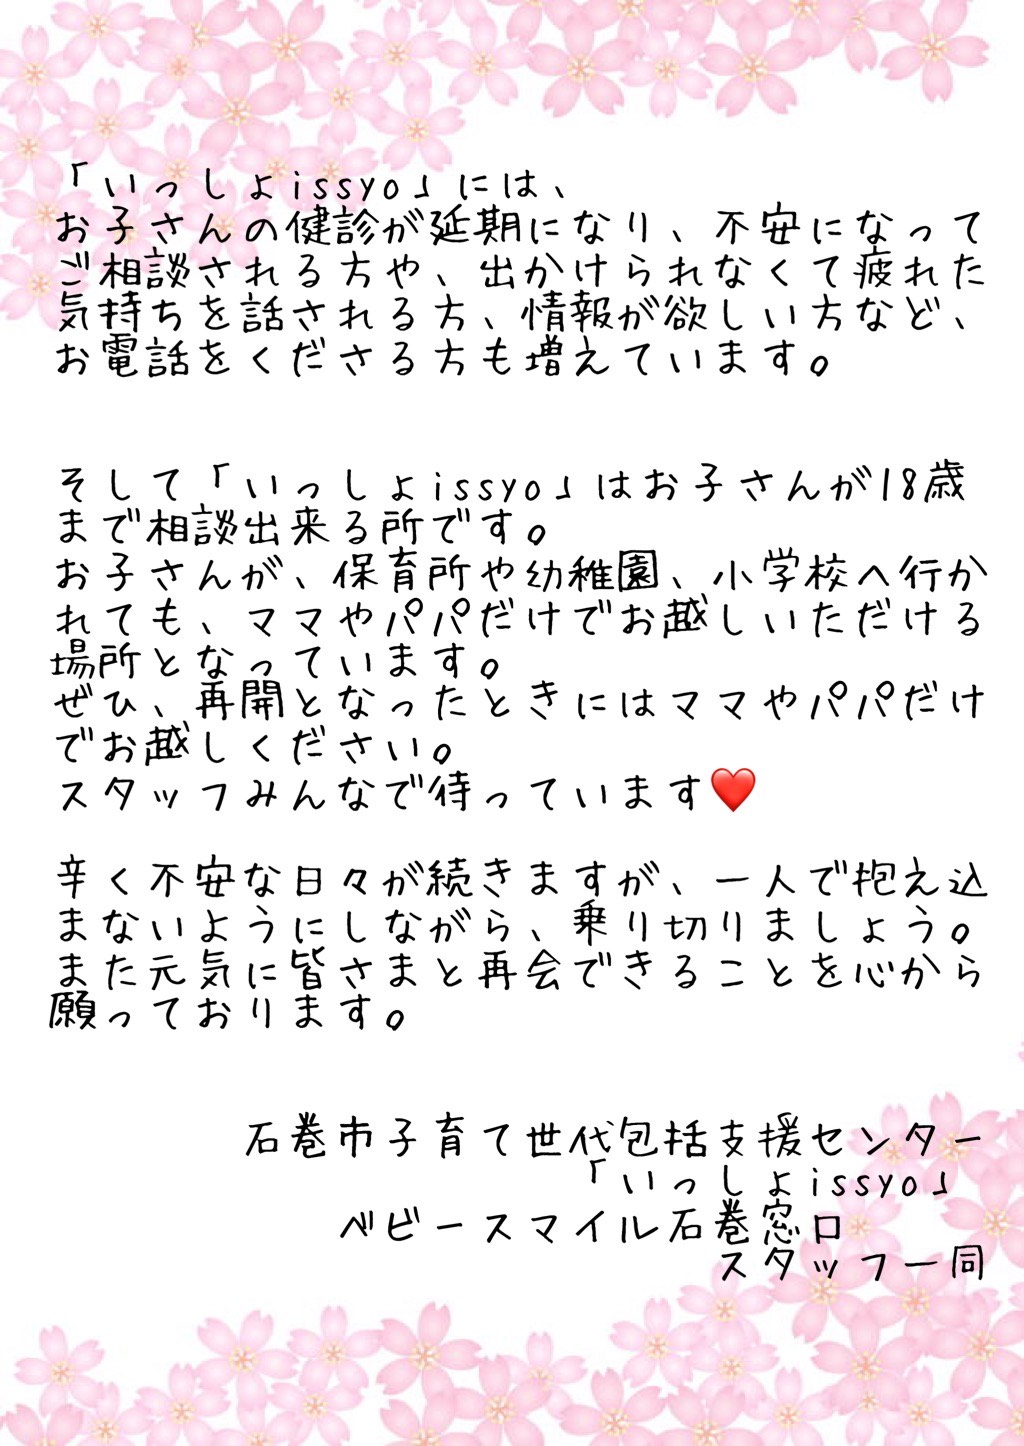 「いっしょissyo」には、
お子さんの健診が延期になり、不安になって
ご相談される方や、出かけられなくて疲れた
気持ちを話される方、情報が欲しい方など、
お電話をくださる方も増えています。
そして「いっしょissyo」はお子さんが18歳
まで相談出来る所です。
お子さんが、保育所や幼稚園、小学校へ行か
れても、ママやパパだけでお越しいただける
場所となっています。
ぜひ、再開となったときにはママやパパだけ
でお越しください。
スタッフみんなで待っています❤️
辛く不安な日々が続きますが、一人で抱え込
まないようにしながら、乗り切りましょう。
また元気に皆さまと再会できることを心から
願っております。
石巻市子育て世代包括支援センター
「いっしょissyo」
ベビースマイル石巻窓口
スタッフ一同